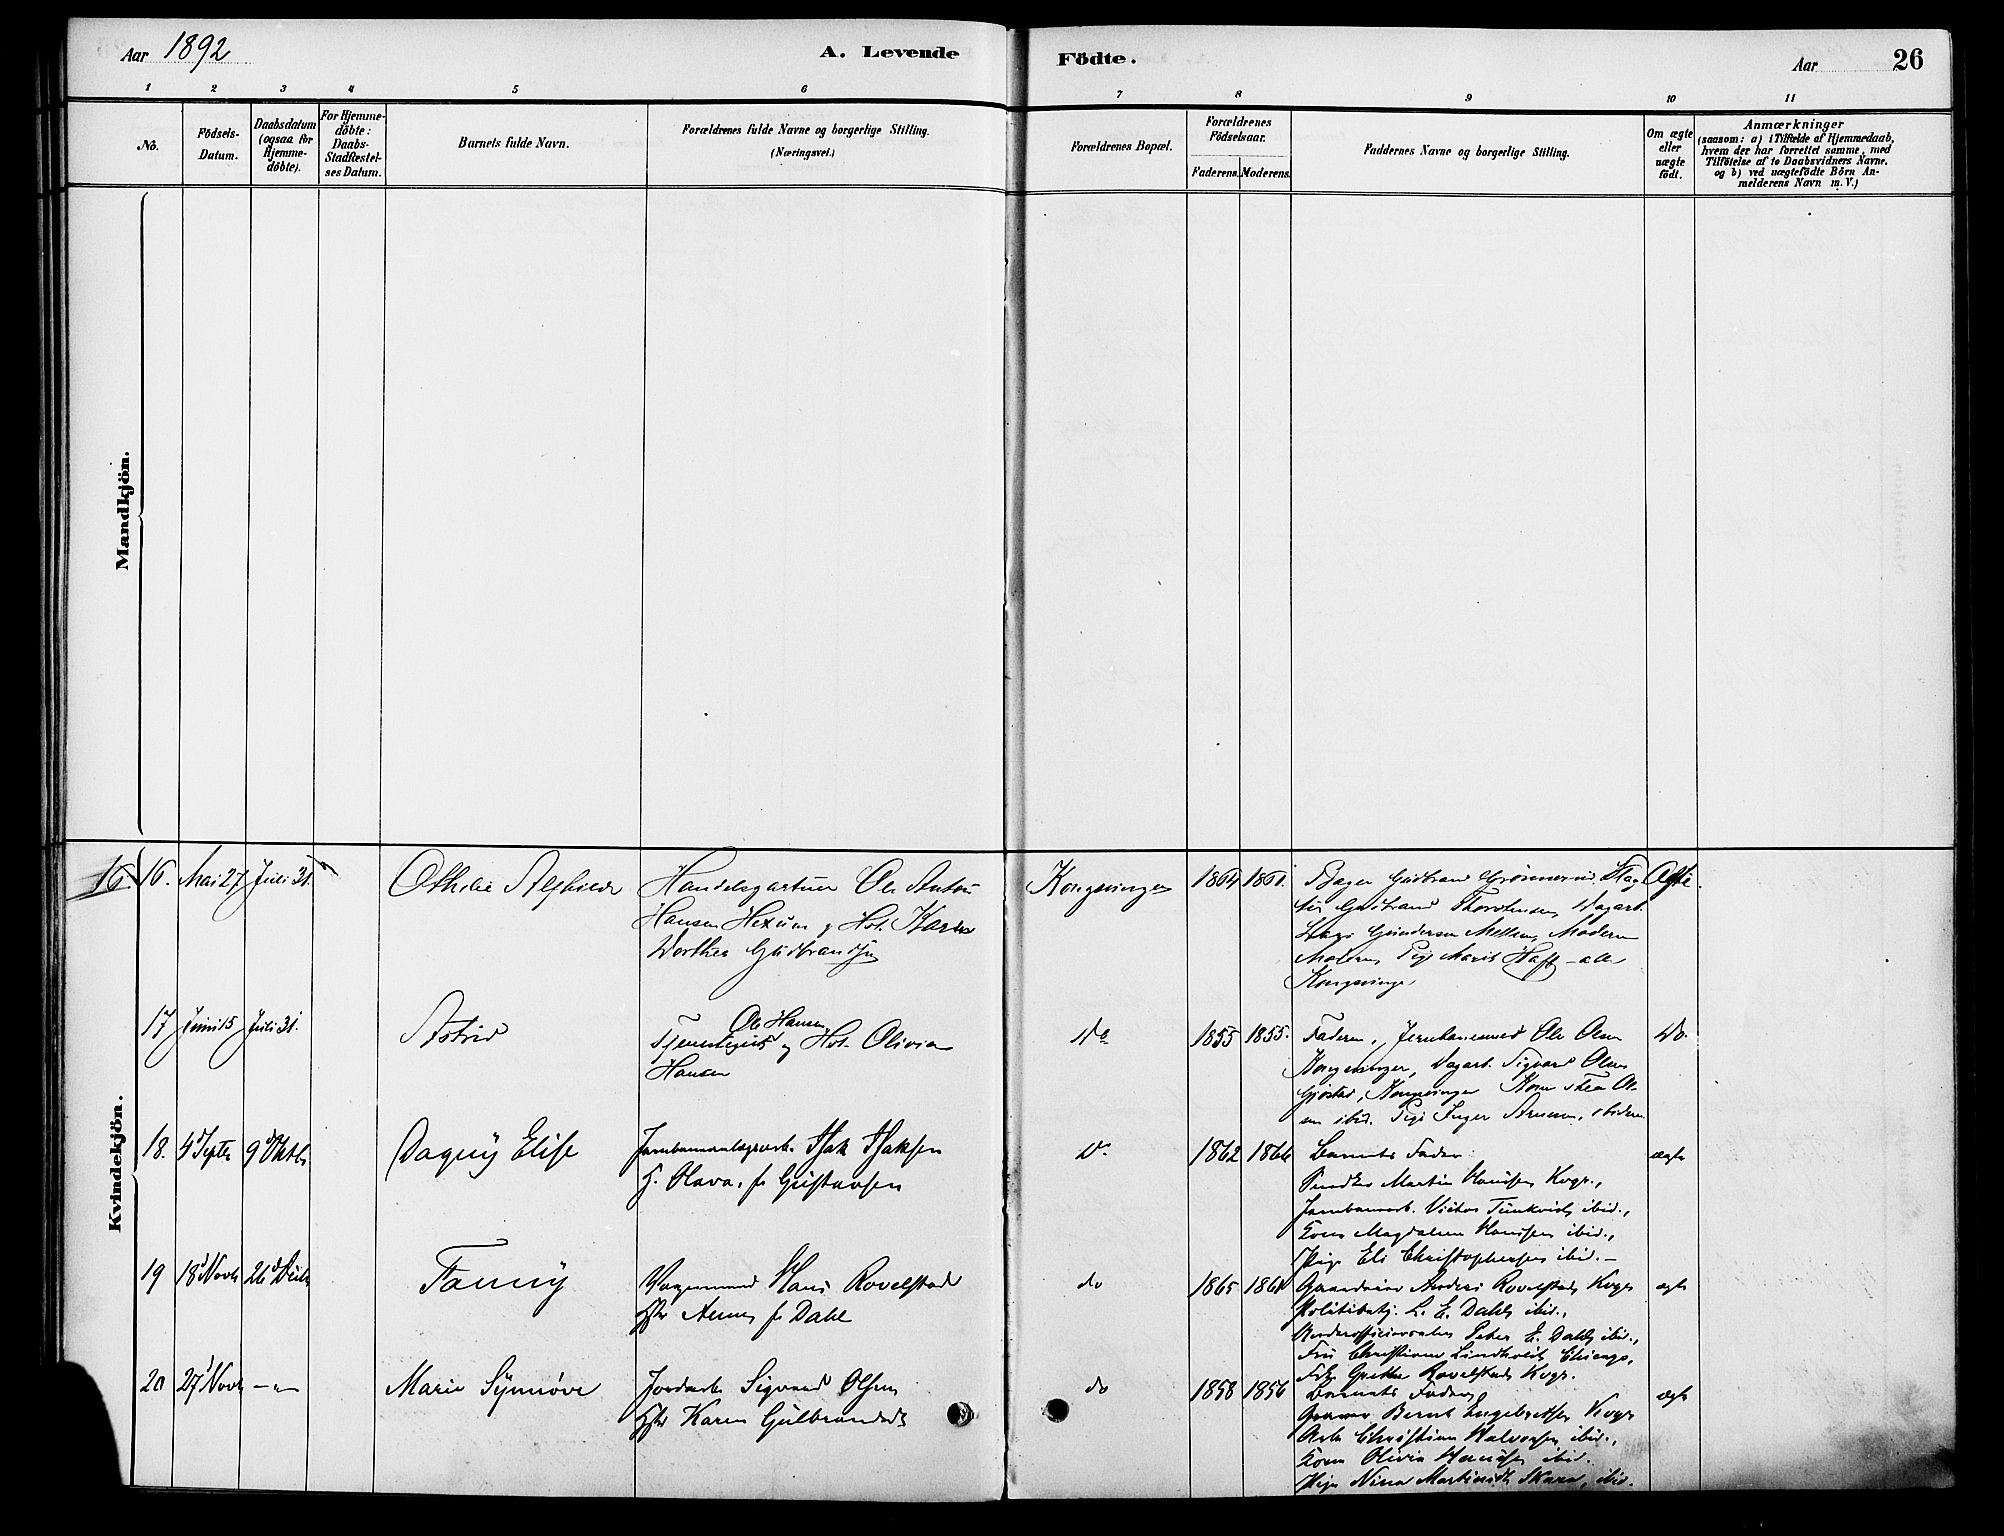 Aar 1892
A. Levende
Födte.
Aar
26
1 2 3 4 5 6 7 8 9 10 11
No.
Födsels-
Datum.
Daabsdatum
(ogsaa for
Hjemme-
döbte).
For Hjemme-
döbte:
Daabs-
Stadfæstel-
ses Datum.
Barnets fulde Navn.
Forældrenes fulde Navne og borgerlige Stilling.
(Næringsvei.)
Forældrenes Bopæl.
Forældrenes
Födselsaar.
Faderens. Moderens.
Faddernes Navne og borgerlige Stilling.
Om ægte
eller
uægte
födt.
Anmærkninger
(saasom: a) i Tilfælde af Hjemmedaab,
hvem der har forrettet samme, med
Tilföielse af to Daabsvidners Navne.
og b) ved uægtefödte Börn An-
melderens Navn m. V.)
Mandkjön.
Kvindekjön.
16. 16. Mai 27 Juli 31.
Othilie Alfhilde
Handelsgartner Ole Anton
Hansen Hexum og Hst. Karen
Dorthea Gudbrandsen
Kongsvinger
1864 1861.
Gudbrand
Gudbrand Thorstensen, Dagarb.
Gundersen Moderen
Pige Marit - alle
Kongsvinger
Ægte.
17 Juni 15 Juli 31.
Astrid
Ole Hansen
og Hst. Olivia
Hansen
Do
1855 1855.
Faderen, Jernbanemed Ole Olsen
Kongsvinger, Dagarb. Sigvard Olsen
Kongsvinger Kone Thea Ol-
sen ibid. Pige Inger ibidem
Do.
18. 4d Septr 9d Oktbr
Dagny Elise
Isak Isaksen
H. Olava, f. Gustavsen
Do
1862 1866
Barnets Fader
Martin Hansen Kvgr.,
Jernbanearb. Victor ibid.,
Kone Magdalene Hansen ibid.,
Pige Eli Christophersen ibid. -
ægte
19 18d Novbr 26d Decbr
Fanny
Vognmand Hans Rovelstad
Hstr Anna f. Dahl
do
1865
Gaardeier Anders Rovelstad, Kvgr
Politibetj. L. E. Dahl, ibid.,
Underofficerselev Peter E. Dahl, ibid.,
Fru Christiane Lindholdt, Chicago,
Frk. Grethe Rovelstad, Kvgr.
ægte
20 27d Novbr - " -
Marie Synnøve
Jordarb. Sigvard Olsen
Hstr Karen Gulbrandsdt
do
1858 1856
Barnets Fader,
Bernt Engebretsen Kvgr
Arb. Christian Halvorsen ibid.,
Kone Olivia Hansen ibid.
Pige Nina Martinsdt Skara, ibid.
ægte